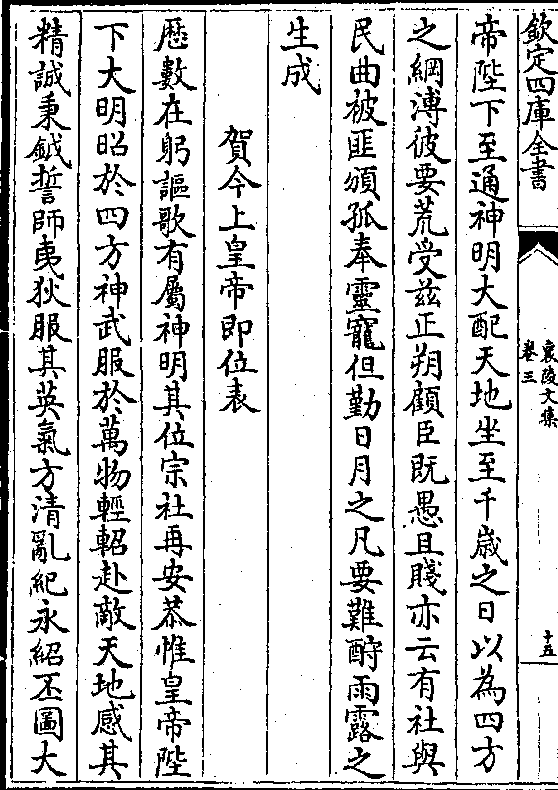 欽定四庫全書
襄陵文集
卷三
十五
帝陛下至通神明大配天地坐至千歳之日以為四方
之綱溥彼要荒受兹正朔顧臣既愚且賤亦云有社與
民曲被匪頒孤奉靈寵但勤日月之凡要難酧雨露之
生成
賀今上皇帝即位表
歴數在躬謳歌有屬神明其位宗社再安恭惟皇帝陛
下大明昭於四方神武服於萬物輕軺赴敵天地感其
精誠秉鉞誓師夷狄服其英氣方清亂紀永紹丕圖大